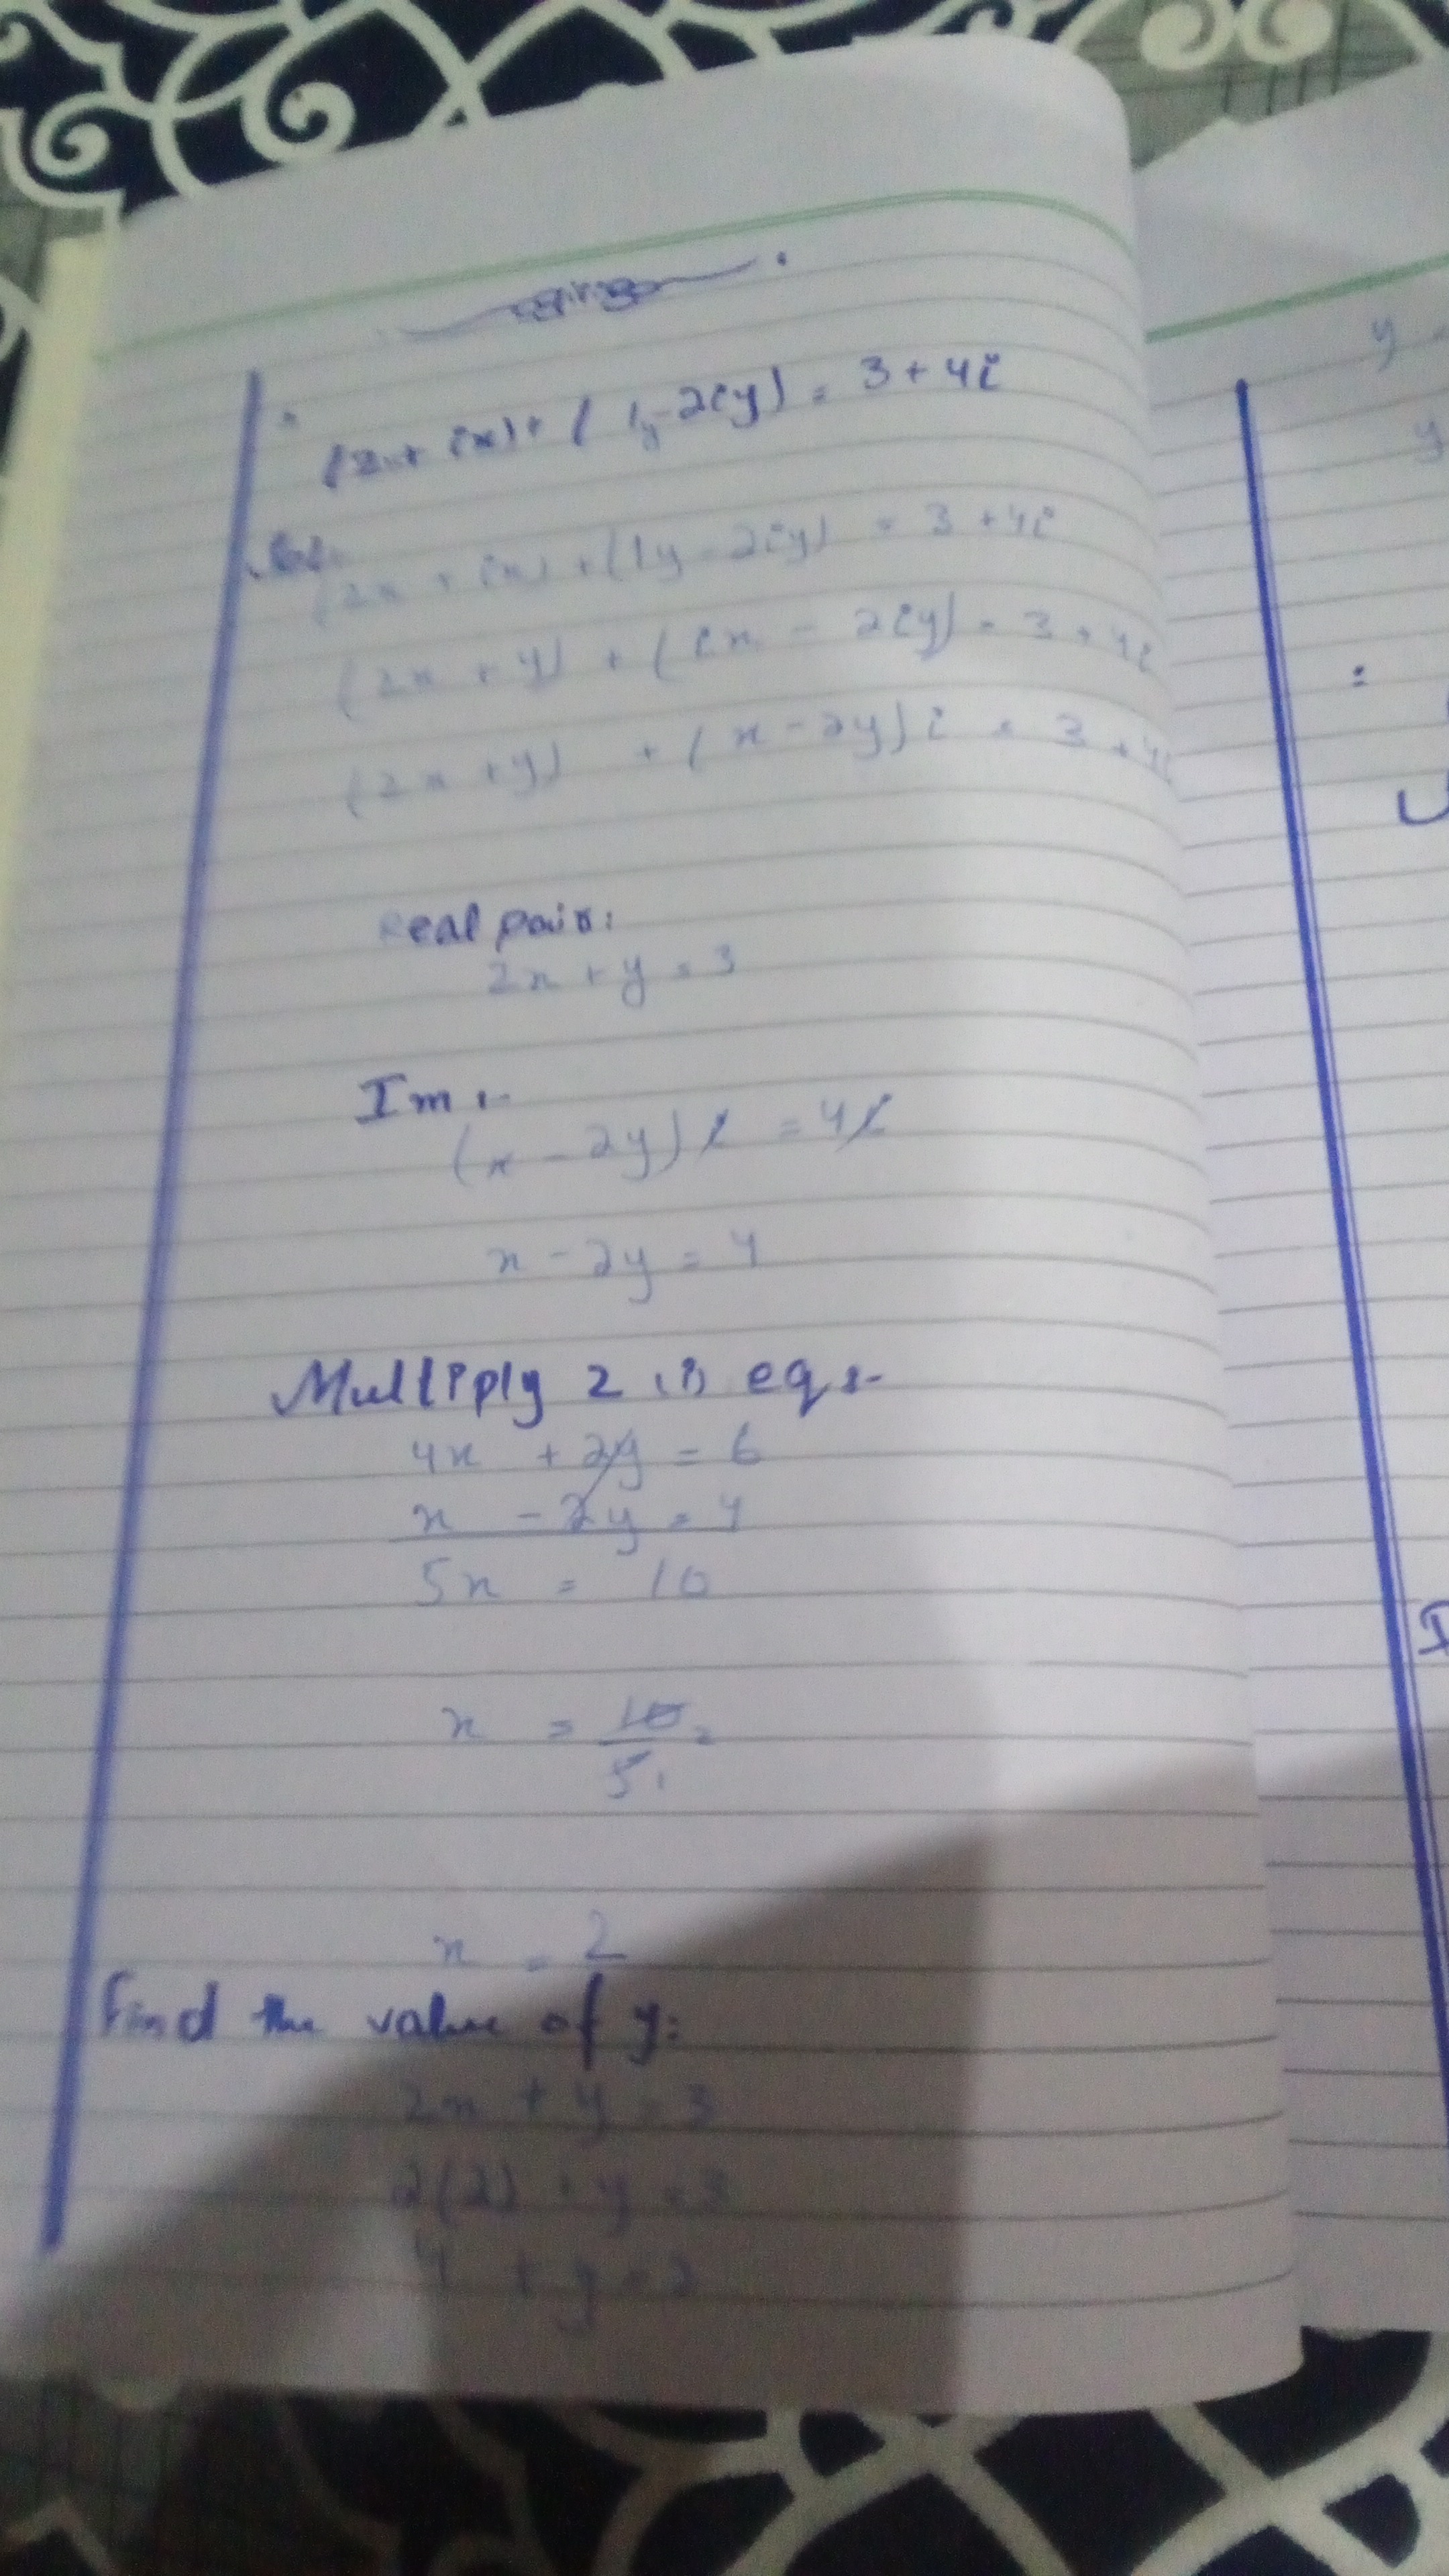 (2x + ix) + (1y - 2iy) = 3 + 4i
Sol:
(2x + ix) + (1y - 2iy) = 3 + 4i
(2x + y) + (ix - 2iy) = 3 + 4i
(2x + y) + (x - 2y) i = 3 + 4i
Real pair:
2x + y = 3
Im :-
(x - 2y) i = 4i
x - 2y = 4
Multiply 2 is eq:-
4x + 2y = 6
x - 2y = 4
5x = 10
x = 10/5
x = 2
Find the value of y:
2x + y = 3
2(2) + y = 3
4 + y = 3
y
y
=